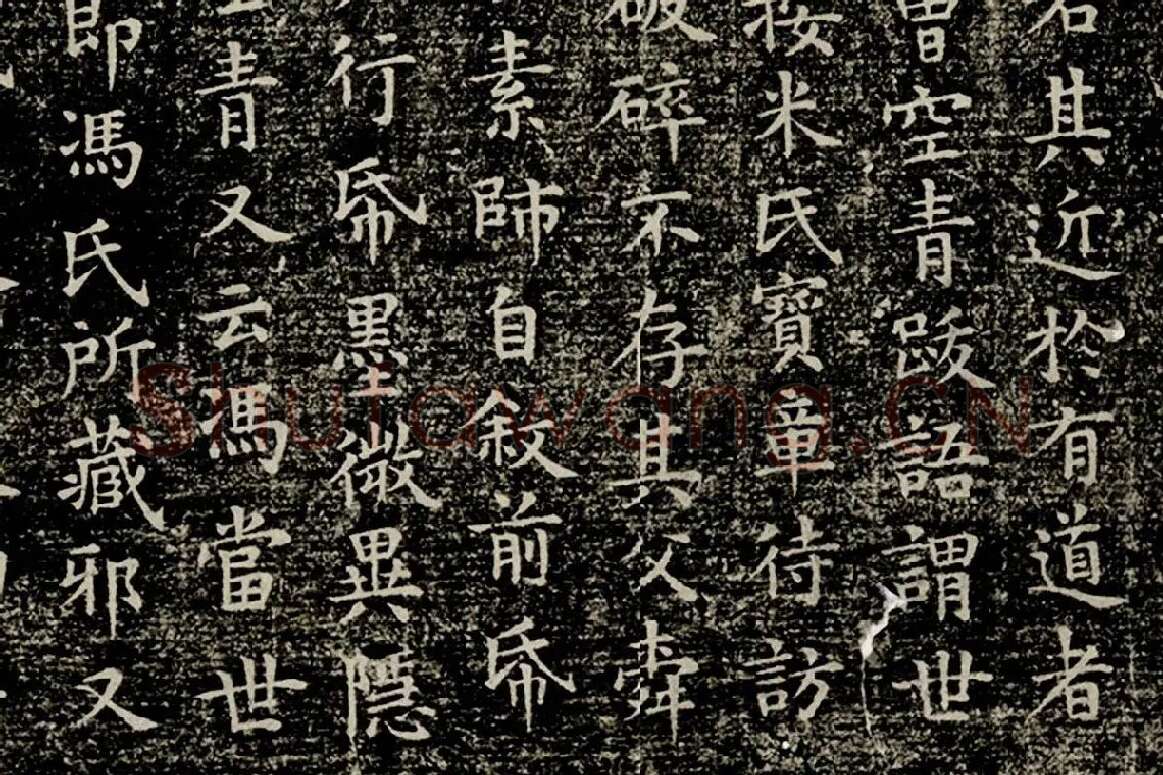 其近於有道者
曾空青跋語謂世
按米氏寶章待訪
破碎不存其父舜
素師自敘前帋
行帋墨微異隱
青又云馮當世
即馮氏所藏邪又
Shufawang.CN